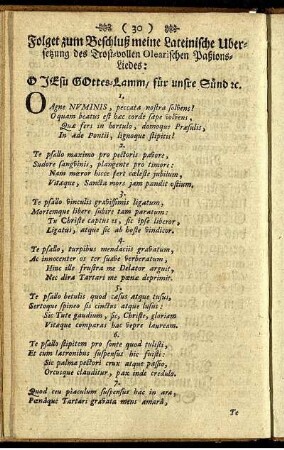 ( 30 )
Folget zum Beschluß meine Lateinische Uber-
setzung des Trost-vollen Olearischen Paßions-
Liedes:
O JEsu GOttes-Lamm, für unsre Sünd ꝛc.
1.
O Agne NVMINIS, peccata nostra solvens!
O quam beatus est hac corde sæpe volvens,
Quæ fers in hortulo, domoque Præsulis,
In æde Pontii, lignoque stipitis!
2.
Te psallo maximo pro pectoris pavore,
Sudore sangvinis, plangente pro timore:
Nam mœror hicce fert cœleste jubilum,
Vitæque, Sancta mors jam pandit ostium,
3.
Te psallo vinculis gravissimis ligatum,
Mortemque libere subire tam paratum:
Te Christe captus es, sic ipse liberor,
Ligatus, atque sic ab hoste vindicor.
4.
Te psallo, turpibus mendaciis gravatum,
Ac innocenter os ter suave verberatum,
Hinc ille frustra me Delator arguit,
Nec dira Tartari me pœna deprimit.
5.
Te psallo betulis quod cæsus atque tusus,
Sertoque spineo sis cinctus atque lusus:
Sic Tute gaudium, sic, Christe, gloriam
Vitæque comparas hac vepre lauream.
6.
Te psallo stipitem pro sonte quod tulisti,
Et cum latronibus suspensus hic fuisti:
Sic palma pectori crux atque passio,
Orcusque clauditur, pax inde credulo.
7.
Quod tu piaculum suspensus hac in ara,
Pœnaque Tartari gravata mens amara,
Te